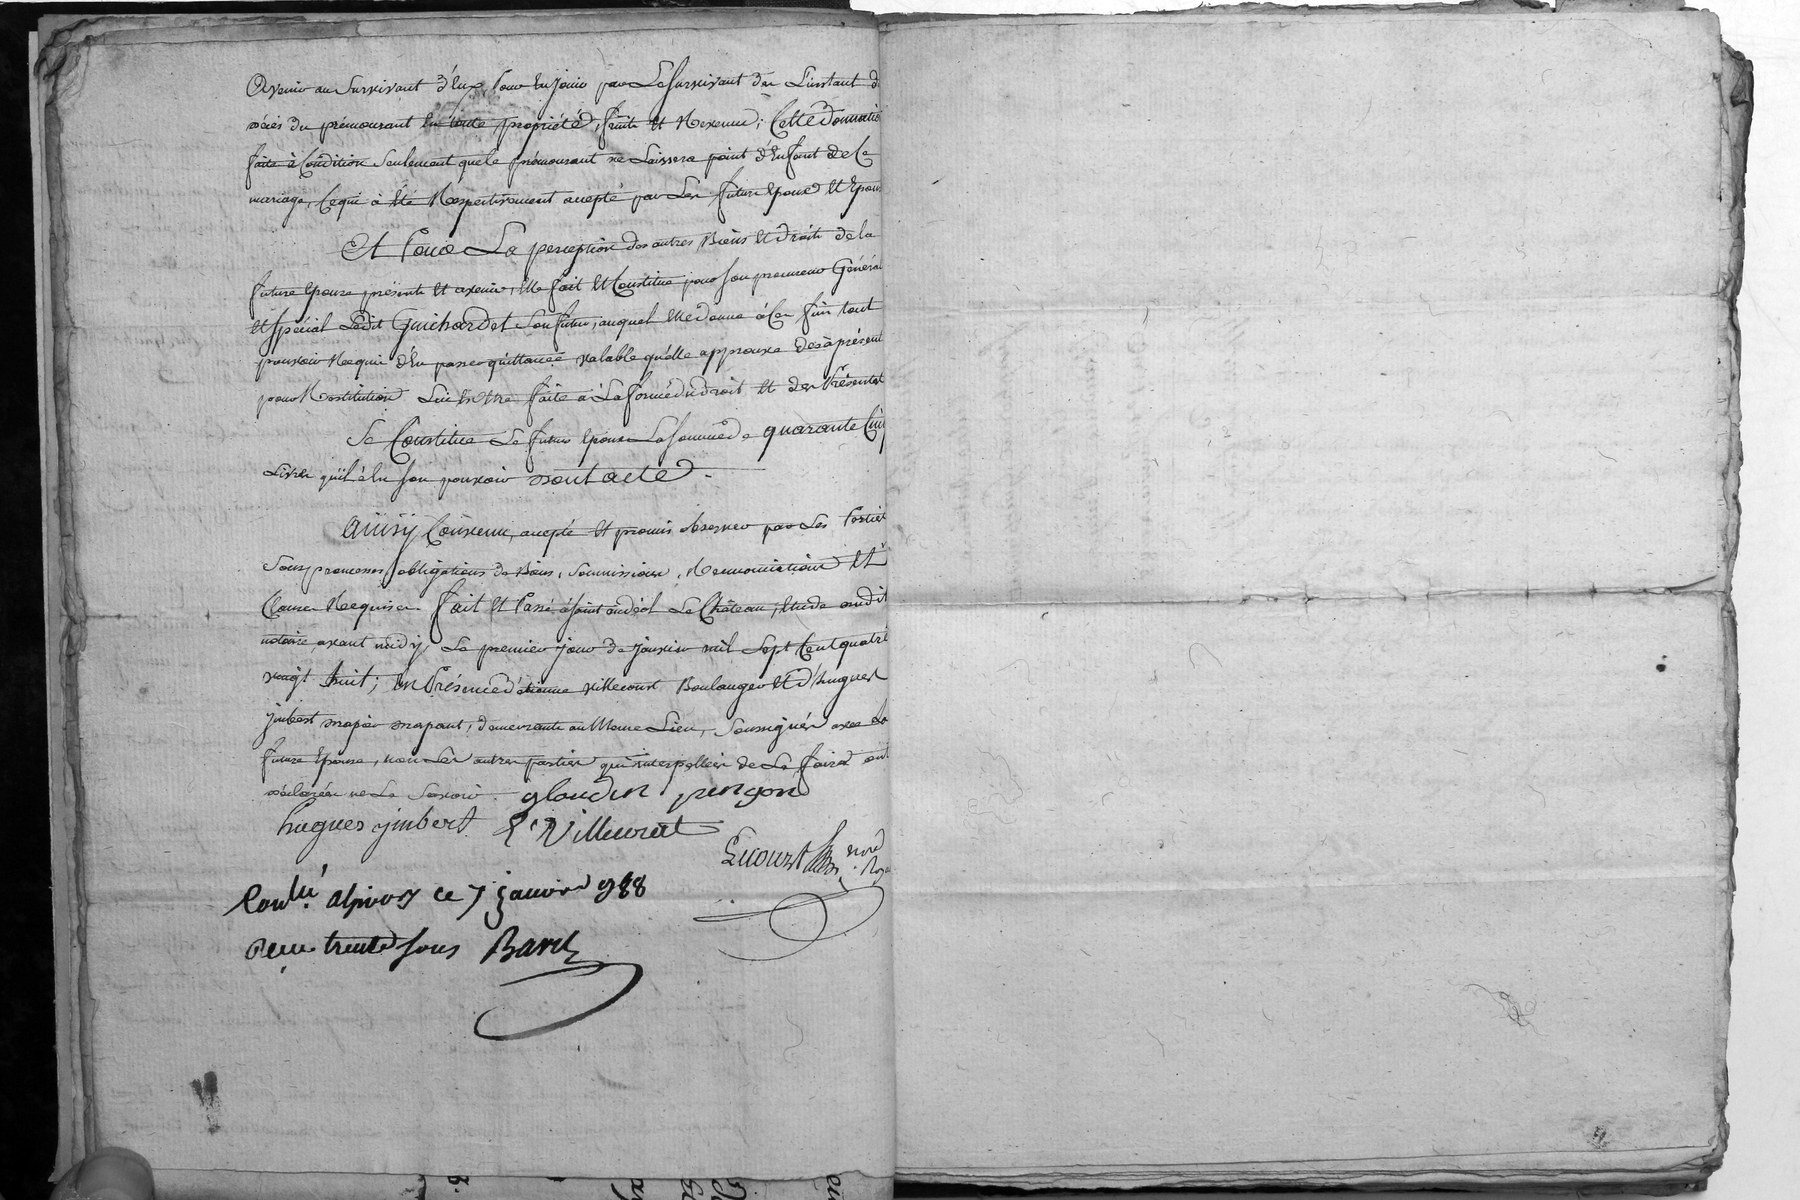 avenir au survivant d'Eux pour En jouir par Le survivant des L'instant d
décés du prémourant En toute propriété, fruits Et Revenu; Cette donnatio
faite à Condition seulement que le prémourant ne Laissera point d'Enfant de Ce
mariage, Ce qui à Eté Respectivement accepté par Les futurs Epoux Et Epous
Et Pour La perception des autres Biens Et droits de la
future Epouse présents Et avenir, Elle fait Et Constitue pour son procureur Général
Et spécial Ledit Guichardet son futur, auquel Elle donne à Ces fins tout
pouvoir Requis d'En passer quittance valable qu'elle approuve des aprésent
pour Restitution Lui En Etre faite à La forme du droit Et des Présentes
Se Constitue Le futur Epoux La somme de quarante Cinq
Livres qu'il à En son pouvoir dont acte.
Ainsy Convenu, accepté Et promis observer par Les Parties
sous promesses, obligations de Biens, soumissions, Renonciations Et
Clauses Requises. fait Et Passé à saint andéol Le Château, Etude dudit
notaire, avant midy, Le premier jour de janvier mil sept Cent quatre
vingt huit; En Présence d'étienne villecourt Boulanger Et d'hugues
jmbert, demeurants au Meme Lieu, soussignés avec La
future Epouse, non Les autres parties qui interpellées de Le faire ont
déclarées ne Le savoir. glaudin pingon
hugues jmbert E. Villecourt
Conlé. a givors ce 7 janvier 988
Reçu trente sous